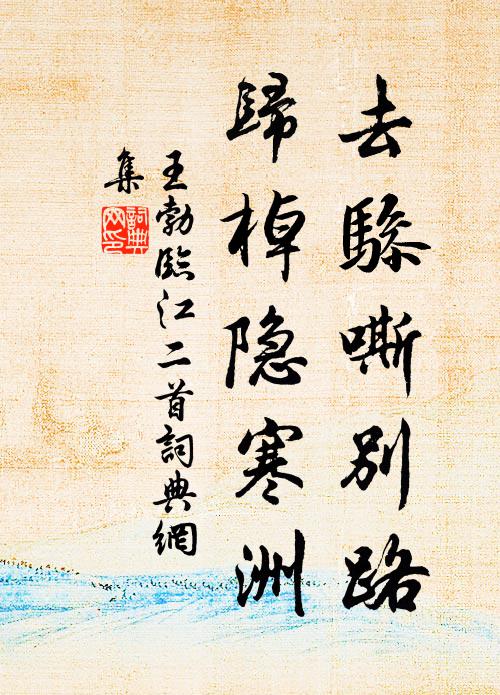 去驂嘶別路
歸棹隐寒洲
王勃臨江二首詞典網
集
詞典
网印